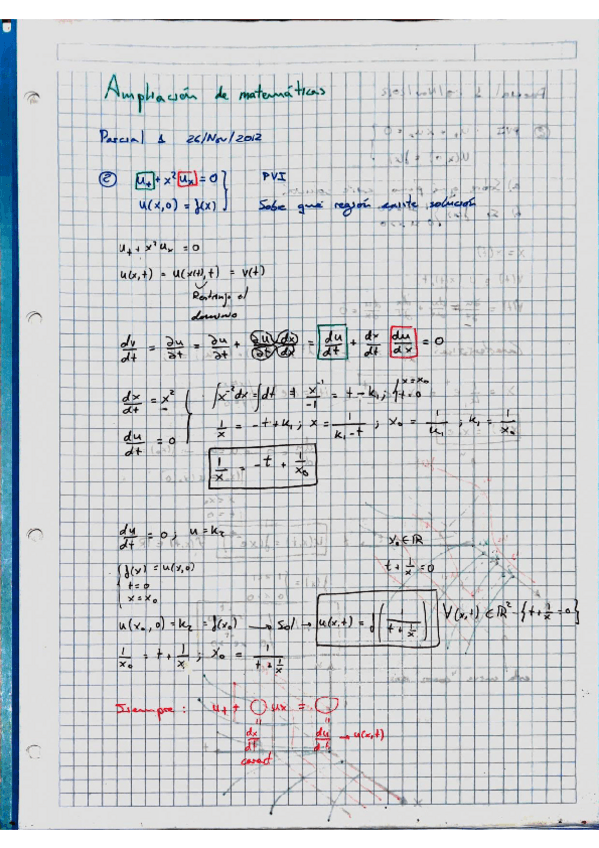 Ampliación de matemáticas
Parcial 1 26/Nov/2012
② u_t + x² u_x = 0 } PVI
u(x,0) = f(x) Sobre qué región existe solución
u_t + x² u_x = 0
u(x,t) = u(x(t),t) = v(t)
Restrinjo el
dominio
dv/dt = ∂u/∂t = ∂u/∂t + ∂u/∂t ∂x/∂x = du/dt + dx/dt du/dx = 0
dx/dt = x² ∫x⁻²dx = ∫dt → x⁻¹/-1 = t - k₁ ; { x=x₀ t=0
du/dt = 0 1/x = -t + k₁ ; x = 1/(k₁-t) ; x₀ = 1/k₁ ; k₁ = 1/x₀
1/x = -t + 1/x₀
du/dt = 0 ; u = k₂ x₀ ∈ ℝ
{ f(x) = u(x,0) t + 1/x = 0
t=0
x=x₀
u(x₀,0) = k₂ = f(x₀) → Sol → u(x,t) = f(1/(t+1/x)) ∀(x,t) ∈ ℝ² - {t+1/x=0}
1/x₀ = t + 1/x ; x₀ = 1/(t+1/x)
Siempre : u_t + ◯ u_x = ◯
dx/dt du/dt → u(x,t)
caract